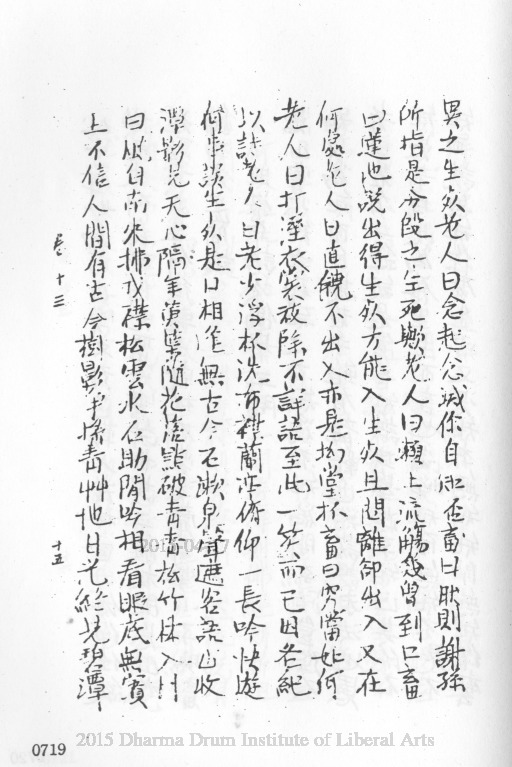 異之生死老人曰念起念滅你自知否畜曰然則謝孫
所指是分段之生死歟老人曰瀨上流觴幾曾到口畜
曰蓮池說出得生死方能入生死且問離卻出入又在
何處老人曰直饒不出入亦是坳堂杯畜曰究當如何
老人曰打溼衣裳祓除不詳話至此一笑而已因各紀
以詩老人曰老少浮杯洗布襟蘭亭俯仰一長吟快遊
何事談生死是日相逢無古今石漱泉聲遮客語山收
潭影見天心隔年黃葉隨花落點破青青松竹林入
曰風自南來拂我襟松雲水石助閒吟相看眼底無賓
上不信人間有古今樹影平添青艸地日光終見碧潭
卷十三
十五
0719
2015 Dharma Drum Institute of Liberal Arts